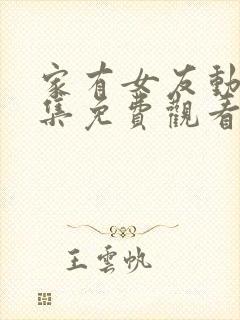 家有女友動
集免費觀看
王雲帆